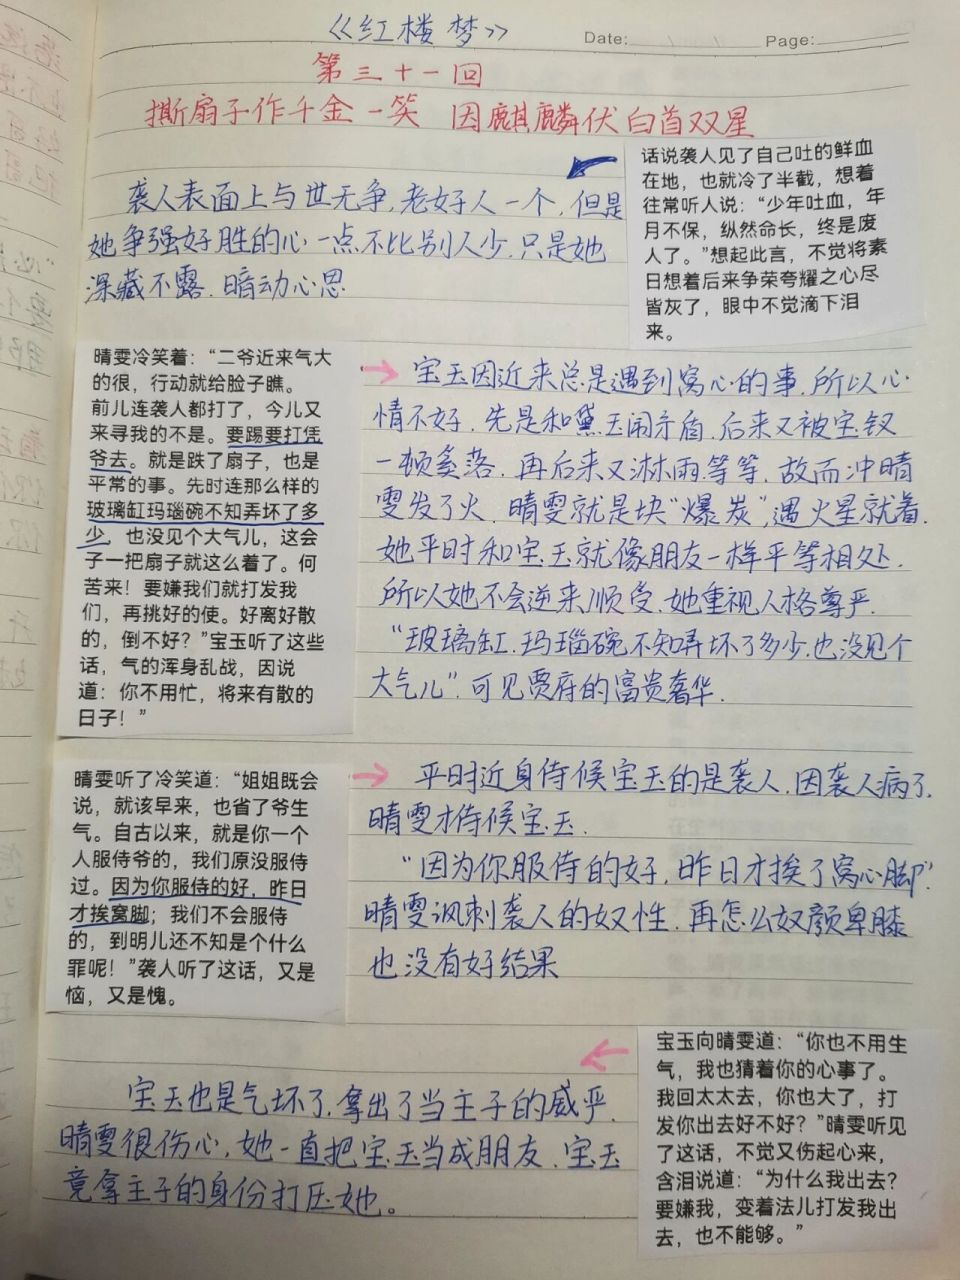 《红楼梦》
Date: Page:
第三十一回
撕扇子作千金一笑 因麒麟伏白首双星
话说袭人见了自己吐的鲜血
在地，也就冷了半截，想着
往常听人说：“少年吐血，年
月不保，纵然命长，终是废
人了。”想起此言，不觉将素
日想着后来争荣夸耀之心尽
皆灰了，眼中不觉滴下泪
来。
袭人表面上与世无争，老好人一个，但是
她争强好胜的心一点不比别人少，只是她
深藏不露，暗动心思
晴雯冷笑着：“二爷近来气大
的很，行动就给脸子瞧。
前儿连袭人都打了，今儿又
来寻我的不是。要踢要打凭
爷去。就是跌了扇子，也是
平常的事。先时连那么样的
玻璃缸玛瑙碗不知弄坏了多
少，也没见个大气儿，这会
子一把扇子就这么着了。何
苦来！要嫌我们就打发我
们，再挑好的使。好离好散
的，倒不好？”宝玉听了这些
话，气的浑身乱战，因说
道：你不用忙，将来有散的
日子！”
宝玉因近来总是遇到窝心的事，所以心
情不好，先是和黛玉闹矛盾，后来又被宝钗
一顿奚落，再后来又淋雨等等，故而冲晴
雯发了火，晴雯就是块“爆炭”，遇火星就着，
她平时和宝玉就像朋友一样平等相处，
所以她不会逆来顺受，她重视人格尊严，
“玻璃缸，玛瑙碗不知弄坏了多少，也没见个
大气儿”，可见贾府的富贵奢华，
晴雯听了冷笑道：“姐姐既会
说，就该早来，也省了爷生
气。自古以来，就是你一个
人服侍爷的，我们原没服侍
过。因为你服侍的好，昨日
才挨窝脚；我们不会服侍
的，到明儿还不知是个什么
罪呢！”袭人听了这话，又是
恼，又是愧。
平时近身侍候宝玉的是袭人，因袭人病了，
晴雯才侍候宝玉，
“因为你服侍的好，昨日才挨了窝心脚”，
晴雯讽刺袭人的奴性，再怎么奴颜卑膝
也没有好结果
宝玉向晴雯道：“你也不用生
气，我也猜着你的心事了。
我回太太去，你也大了，打
发你出去好不好？”晴雯听见
了这话，不觉又伤起心来，
含泪说道：“为什么我出去？
要嫌我，变着法儿打发我出
去，也不能够。”
宝玉也是气坏了，拿出了当主子的威严，
晴雯很伤心，她一直把宝玉当成朋友，宝玉
竟拿主子的身份打压她。